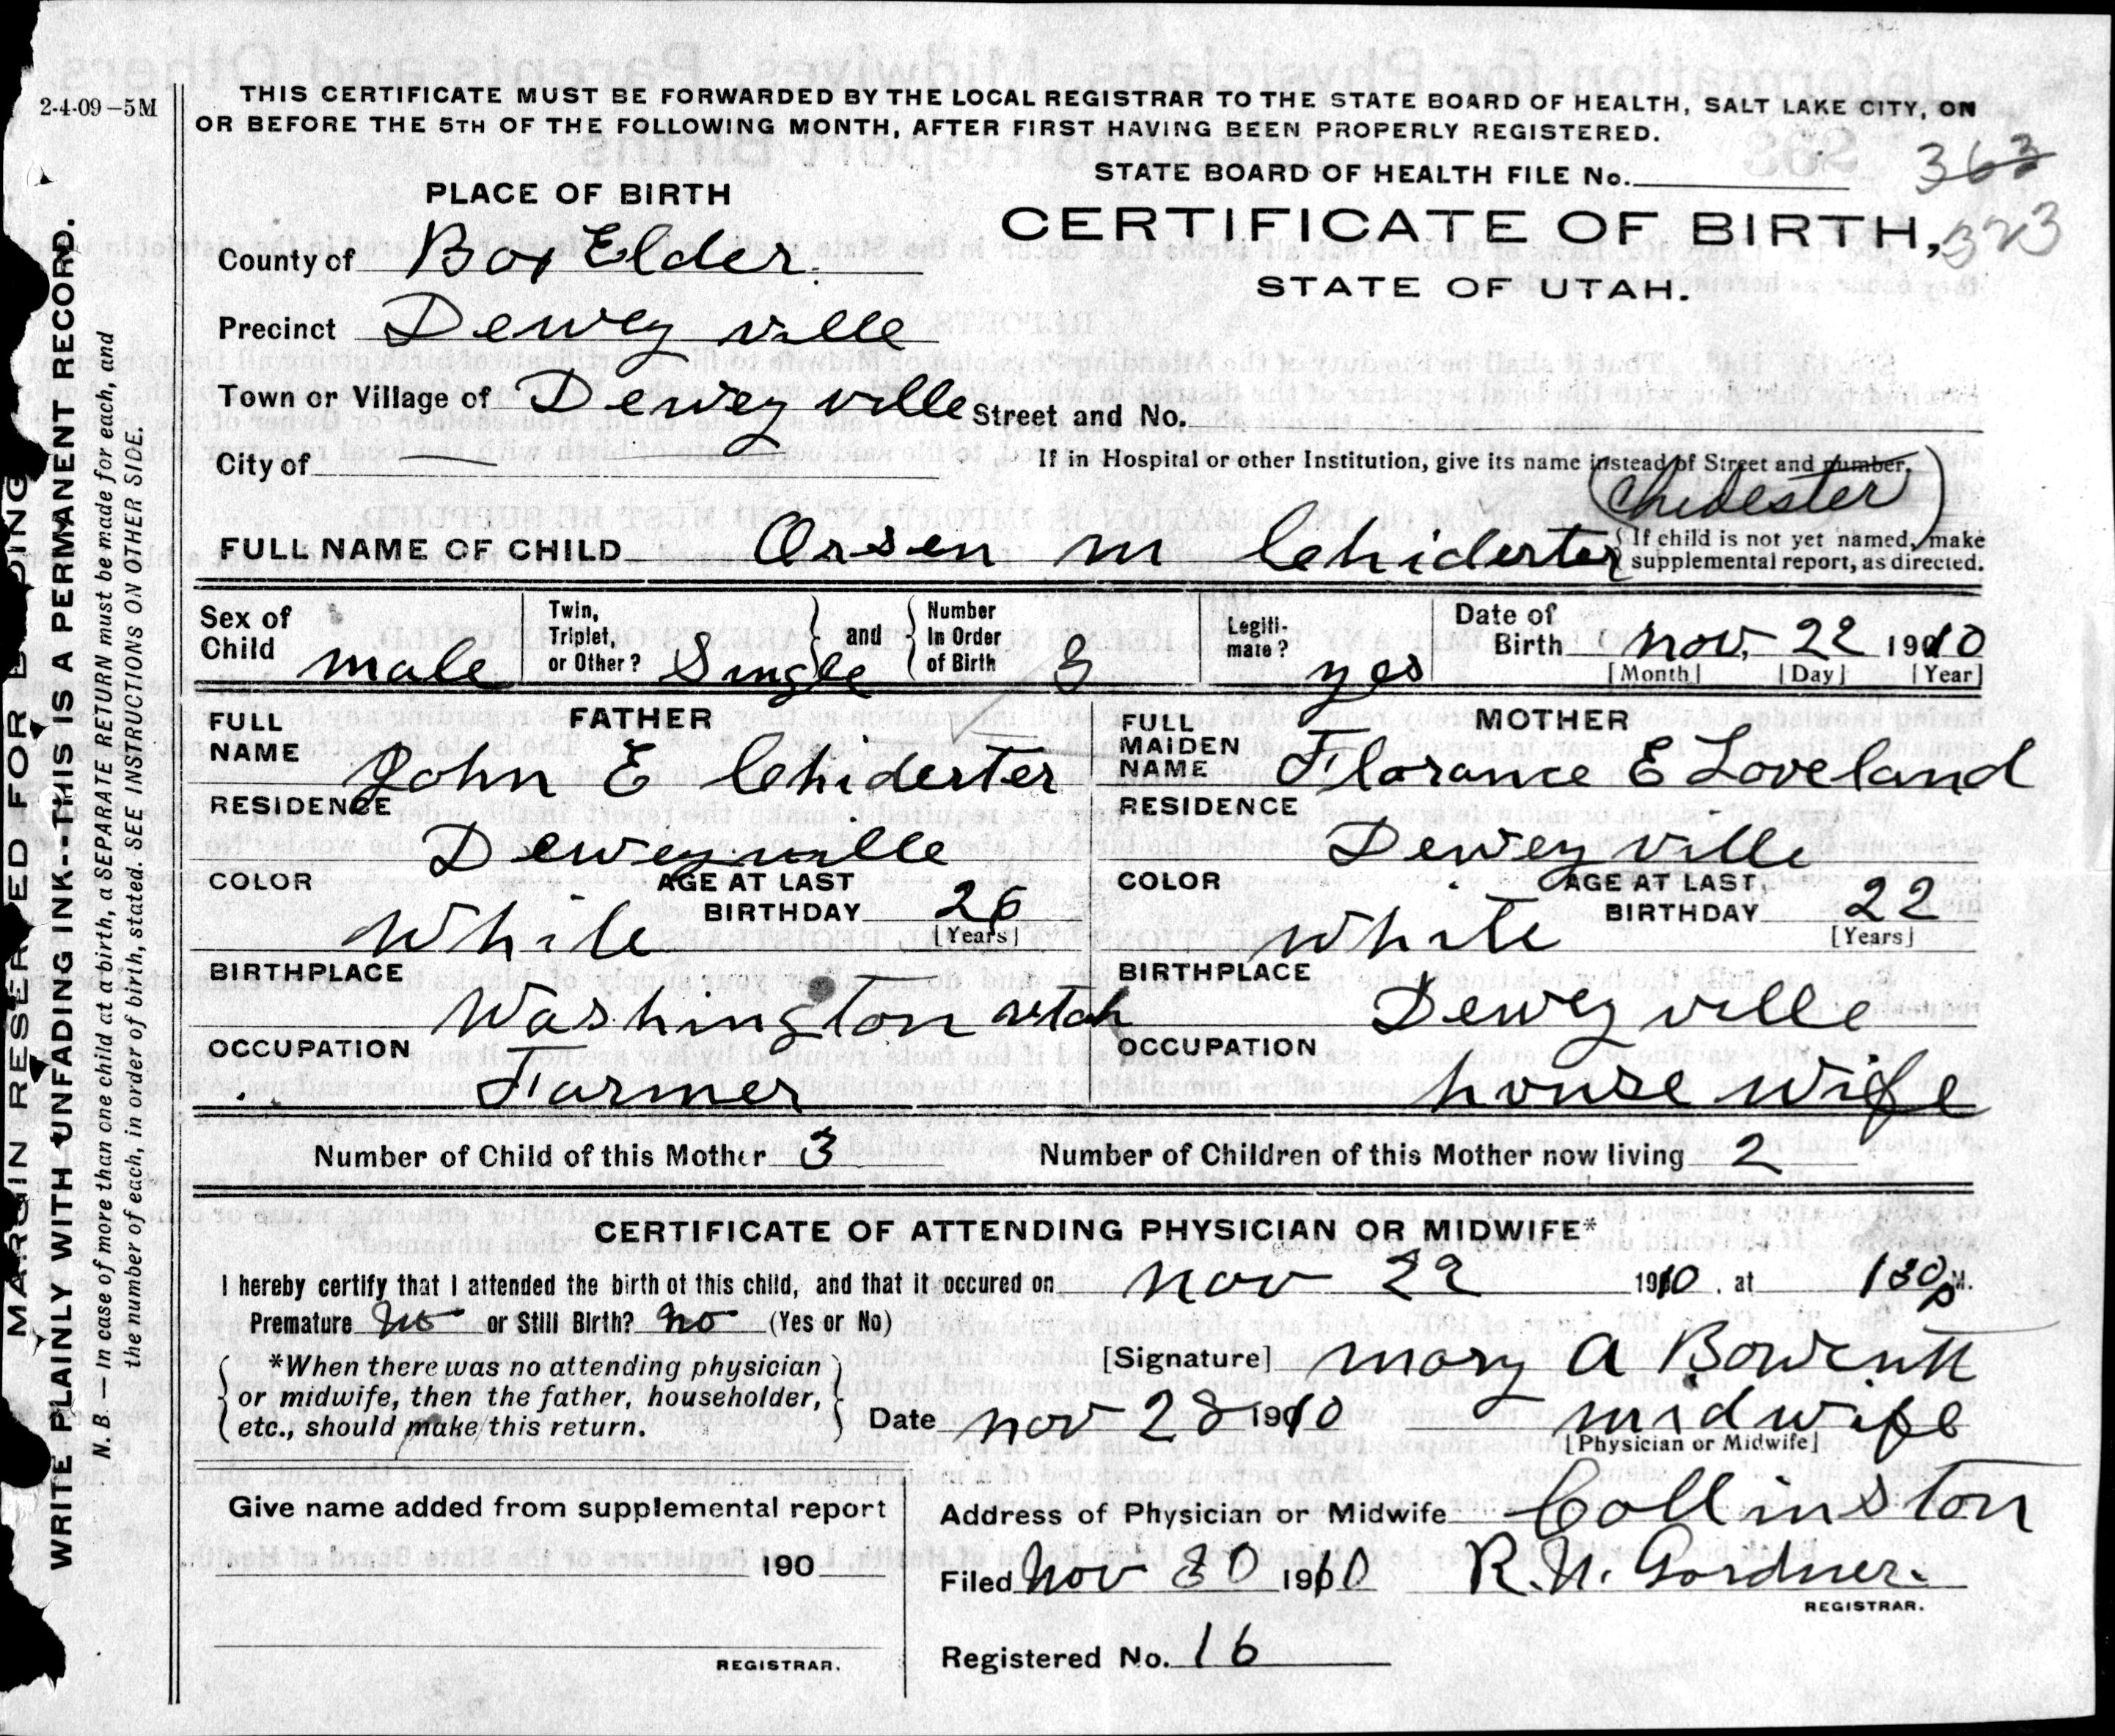 2-4-09–5M
THIS CERTIFICATE MUST BE FORWARDED BY THE LOCAL REGISTRAR TO THE STATE BOARD OF HEALTH, SALT LAKE CITY, ON
OR BEFORE THE 5TH OF THE FOLLOWING MONTH, AFTER FIRST HAVING BEEN PROPERLY REGISTERED.
STATE BOARD OF HEALTH FILE No. 363
323
PLACE OF BIRTH
CERTIFICATE OF BIRTH,
STATE OF UTAH.
County of Box Elder.
Precinct Dewey ville
Town or Village of Dewey ville Street and No.
City of
If in Hospital or other Institution, give its name instead of Street and number.
(Chidester)
FULL NAME OF CHILD Orsen M Chiderter
{ If child is not yet named, make
supplemental report, as directed.
Sex of Child male
Twin, Triplet, or Other? Single } and { Number In Order of Birth 3
Legiti-mate? yes
Date of Birth Nov, 22 1910
[Month] [Day] [Year]
FATHER
FULL NAME John E Chiderter
RESIDENCE
Deweyville
COLOR White
AGE AT LAST BIRTHDAY 26
[Years]
BIRTHPLACE
Washington utah
OCCUPATION
Farmer
MOTHER
FULL MAIDEN NAME Florance E Loveland
RESIDENCE
Dewey ville
COLOR White
AGE AT LAST BIRTHDAY 22
[Years]
BIRTHPLACE
Dewey ville
OCCUPATION
house wife
Number of Child of this Mother 3 Number of Children of this Mother now living 2
CERTIFICATE OF ATTENDING PHYSICIAN OR MIDWIFE*
I hereby certify that I attended the birth of this child, and that it occured on Nov 22 1910, at 130 P M.
Premature No or Still Birth? no (Yes or No)
*When there was no attending physician
or midwife, then the father, householder,
etc., should make this return.
[Signature] Mary A Bowcutt
Date Nov 28 1910 midwife
[Physician or Midwife]
Give name added from supplemental report
190
REGISTRAR.
Address of Physician or Midwife Collinston
Filed Nov 30 1910 R.N. Gardner.
REGISTRAR.
Registered No. 16
MARGIN RESERVED FOR BINDING
WRITE PLAINLY WITH UNFADING INK---THIS IS A PERMANENT RECORD.
N. B. — In case of more than one child at a birth, a SEPARATE RETURN must be made for each, and
the number of each, in order of birth, stated. SEE INSTRUCTIONS ON OTHER SIDE.